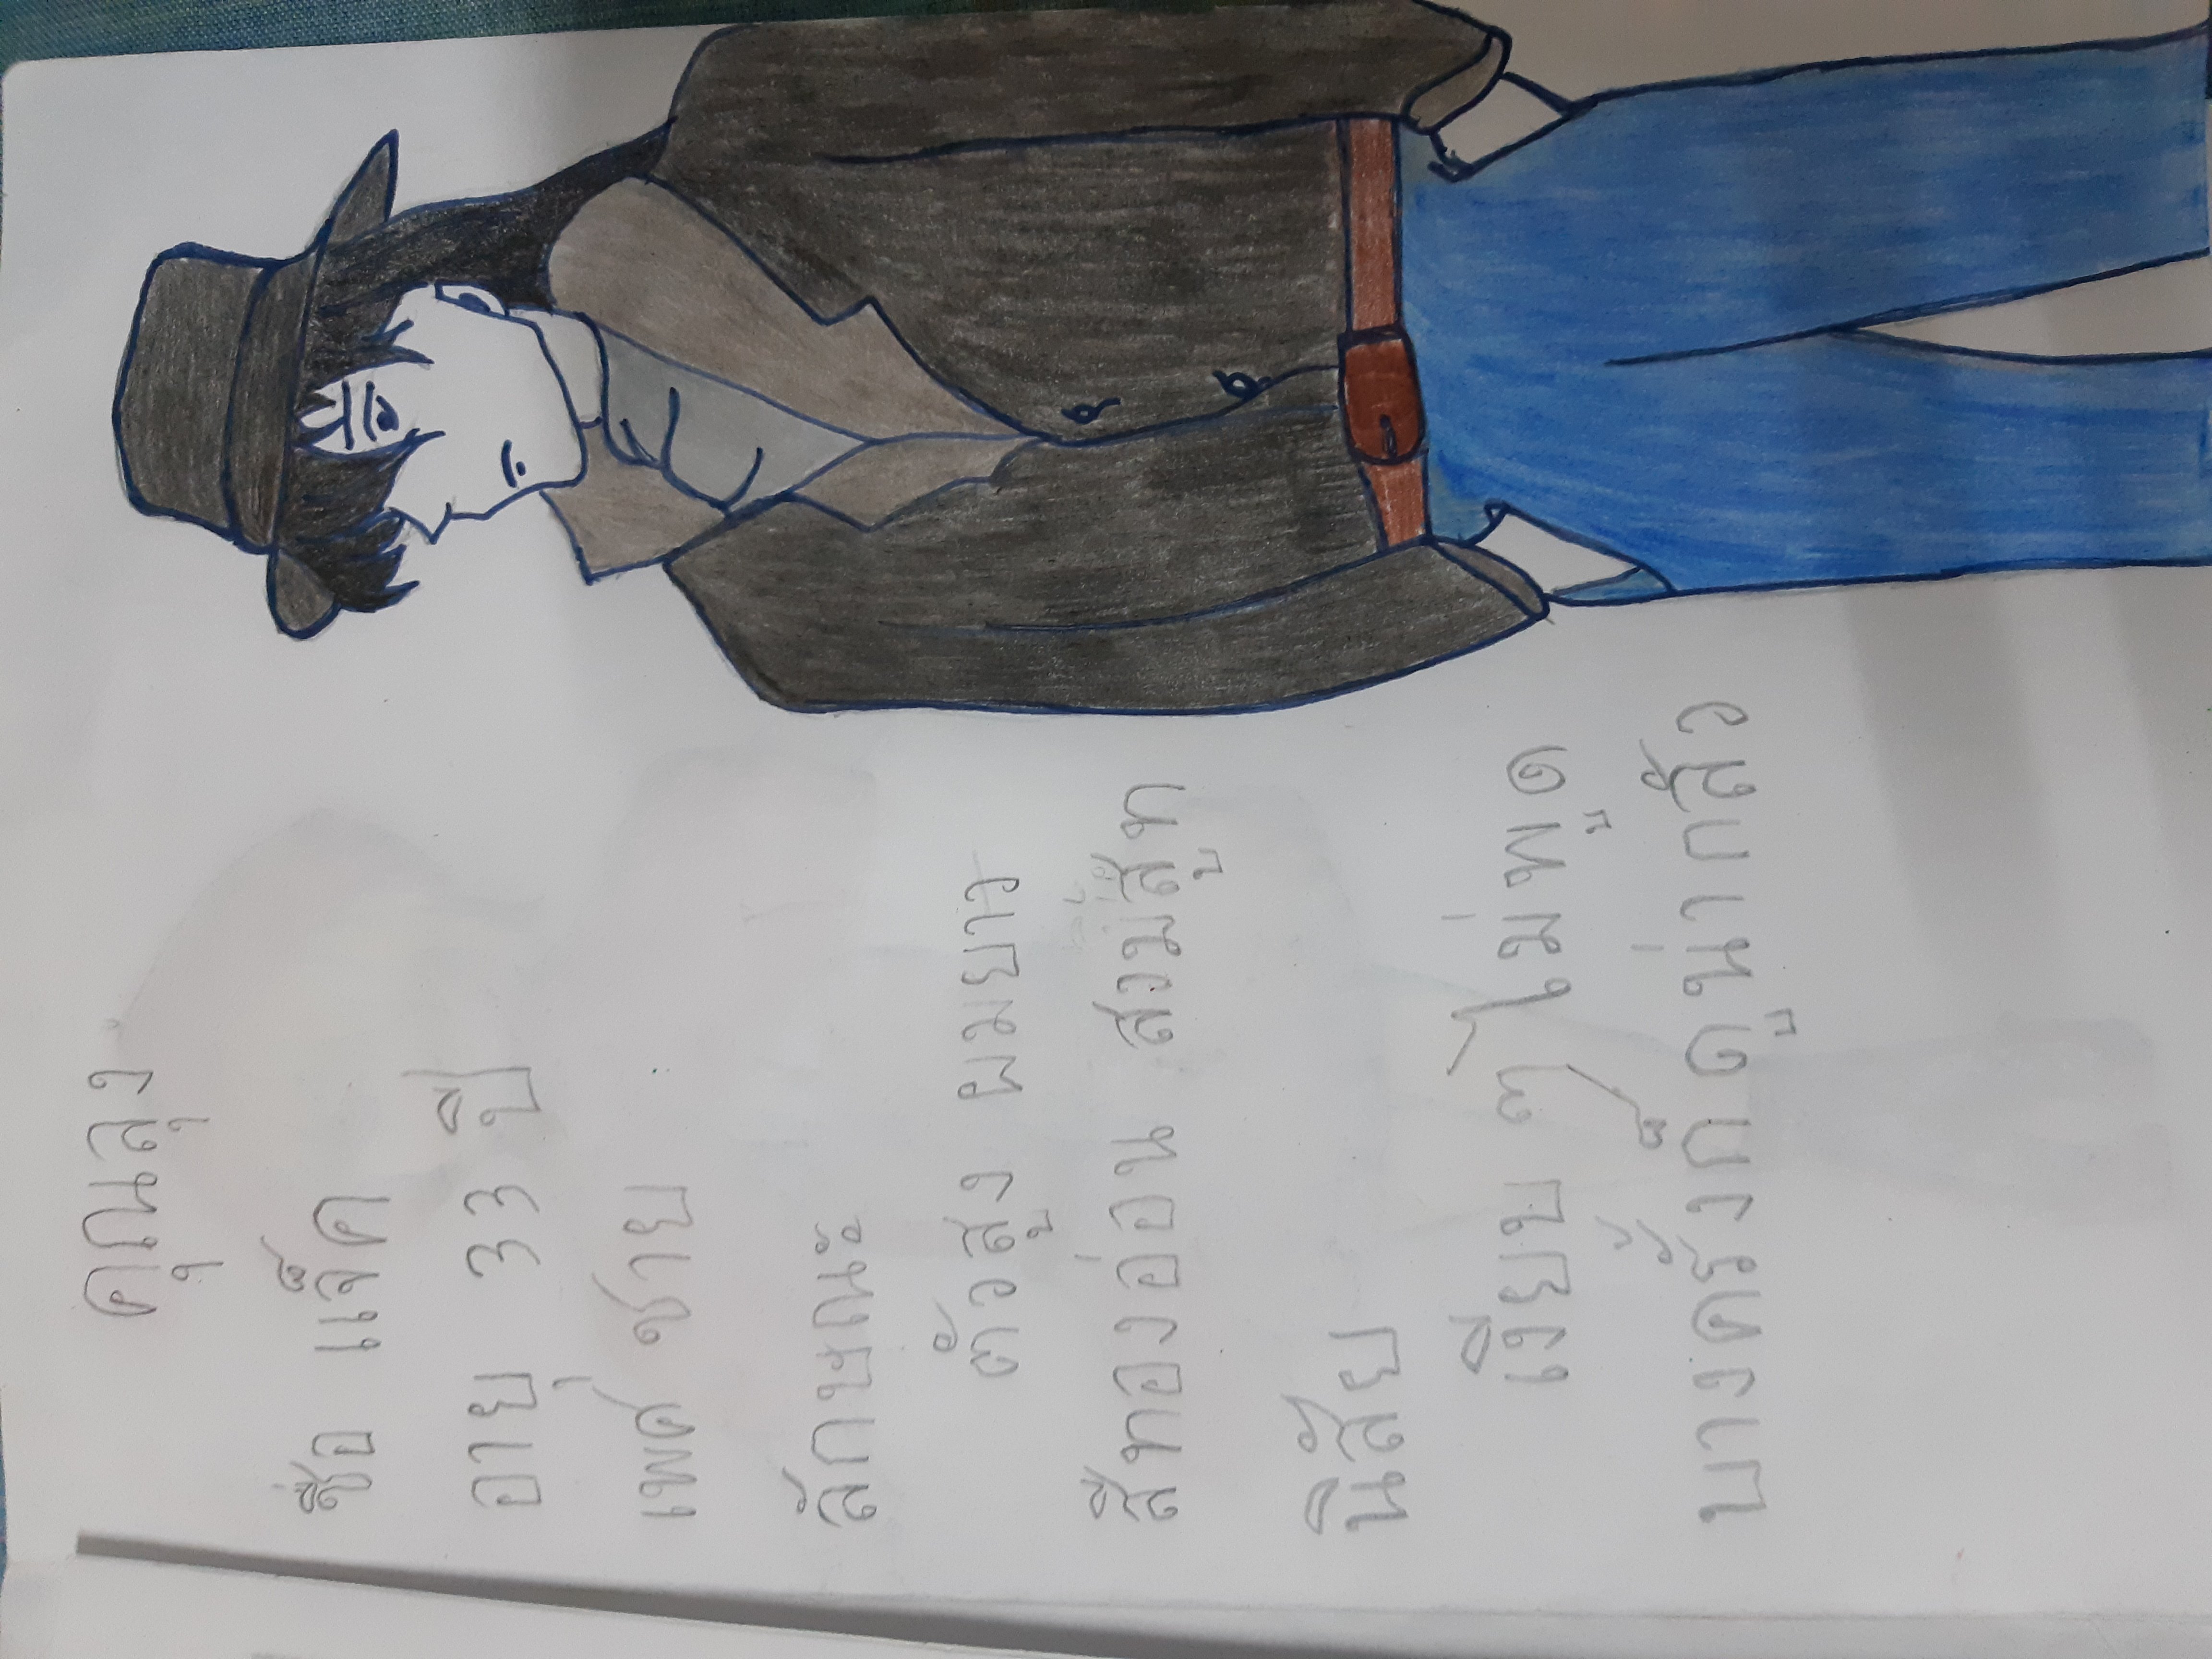 คุณลุง
ชื่อ แจ็ค
อายุ 33 ปี
เพศ ชาย
ลักษณะ
ตัวสูง ผมยาว
สีทองอ่อน สวมสูท
นิสัย
เงียบ ๆ ไม่พูด
บางครั้งก็ดูน่ากลัว